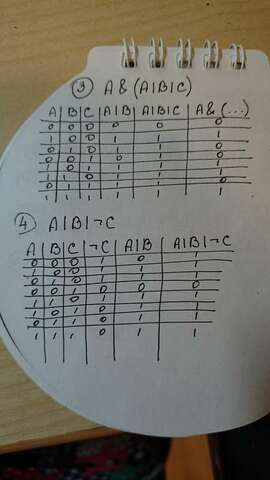 ③ A & (A|B|C)
A | B | C | A|B | A|B|C | A & (...)
0 0 0 0 0 0
1 0 0 1 1 1
0 1 0 1 1 0
0 0 1 0 1 0
1 0 1 1 1 1
1 1 0 1 1 1
0 1 1 1 1 0
④ A|B|¬C
A | B | C | ¬C | A|B | A|B|¬C
0 0 0 1 0 1
1 0 0 1 1 1
0 1 0 1 1 1
0 0 1 0 0 0
1 1 0 1 1 1
1 0 1 0 1 1
0 1 1 0 1 1
1 1 1 0 1 1